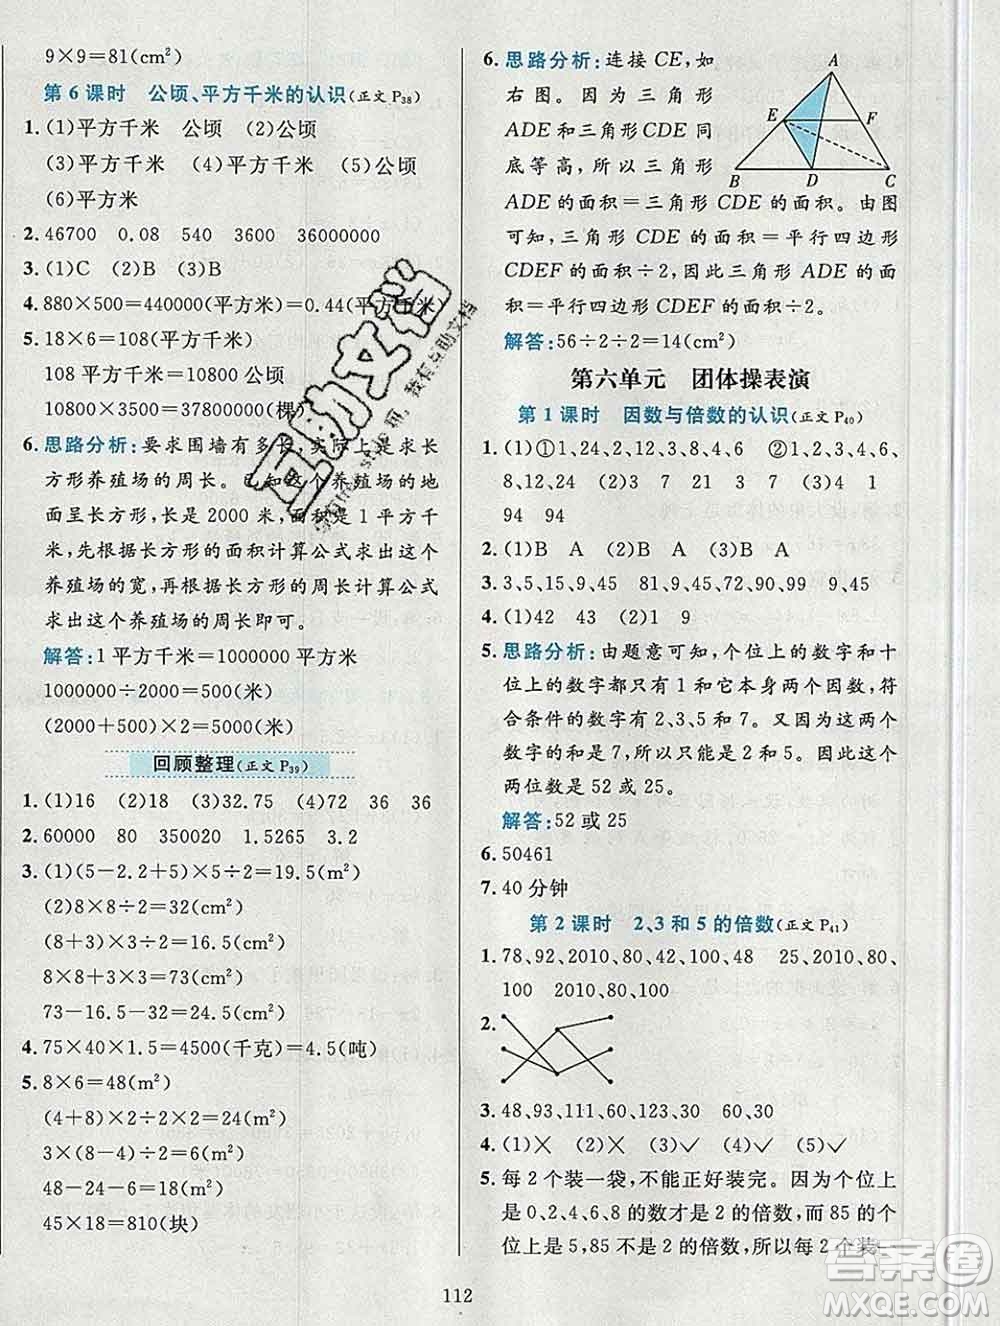 9×9=81(cm²)
第 6 课时　公顷、平方千米的认识(正文 P38)
1. (1)平方千米　公顷　(2)公顷
(3)平方千米　(4)平方千米　(5)公顷
(6)平方米
2. 46700　0.08　540　3600　36000000
3. (1)C　(2)B　(3)B
4. 880×500=440000(平方米)=0.44(平方千米)
5. 18×6=108(平方千米)
108 平方千米=10800 公顷
10800×3500=37800000(棵)
6. 思路分析:要求围墙有多长,实际上是求长
方形养殖场的周长。已知这个养殖场的地
面呈长方形,长是 2000 米,面积是 1 平方千
米,先根据长方形的面积计算公式求出这个
养殖场的宽,再根据长方形的周长计算公式
求出这个养殖场的周长即可。
解答:1 平方千米=1000000 平方米
1000000÷2000=500(米)
(2000+500)×2=5000(米)
回顾整理(正文 P39)
1. (1)16　(2)18　(3)32.75　(4)72　36　36
2. 60000　80　350020　1.5265　3.2
3. (1)(5-2.2+5)×5÷2=19.5(cm²)
(2)8×8÷2=32(cm²)
(8+3)×3÷2=16.5(cm²)
8×8+3×3=73(cm²)
73-16.5-32=24.5(cm²)
4. 75×40×1.5=4500(千克)=4.5(吨)
5. 8×6=48(m²)
(4+8)×2÷2×2=24(m²)
3×2÷2×2=6(m²)
48-24-6=18(m²)
45×18=810(块)
6. 思路分析:连接 CE,如
右图。因为三角形
ADE 和三角形 CDE 同
底等高,所以三角形
ADE 的面积=三角形 CDE 的面积。由图
可知,三角形 CDE 的面积=平行四边形
CDEF 的面积÷2,因此三角形 ADE 的面
积=平行四边形 CDEF 的面积÷2。
A
E
F
B
D
C
解答:56÷2÷2=14(cm²)
第六单元　团体操表演
第 1 课时　因数与倍数的认识(正文 P40)
1. (1)①1,24,2,12,3,8,4,6　②1,2,3,4,6,
8,12,24　3　7　21　3　7　(2)4　1　1
94　94
2. (1)B　A　(2)B　A
3. 3,5,15,9,45　81,45,9,72,90,99　9,45
4. (1)42　43　(2)1　9
5. 思路分析:由题意可知,个位上的数字和十
位上的数字都只有 1 和它本身两个因数,符
合条件的数字有 2、3、5 和 7。又因为这两个
数字的和是 7,所以只能是 2 和 5。因此这个
两位数是 52 或 25。
解答:52 或 25
6. 50461
7. 40 分钟
第 2 课时　2、3 和 5 的倍数(正文 P41)
1. 78、92、2010、80、42、100、48　25、2010、80、
100　2010、80、100
2.
3. 48,93,111,60,123,30　60,30
4. (1)✕　(2)✕　(3)✓　(4)✓　(5)✓
5. 每 2 个装一袋,不能正好装完。个位上
是 0、2、4、6、8 的数才是 2 的倍数,而 85 的个
位上是 5,85 不是 2 的倍数,所以每 2 个装一
112
互助文档
我有互助文档
答案圈
MXQE.COM